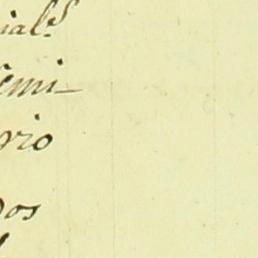 ial.s
emi_
rio
os